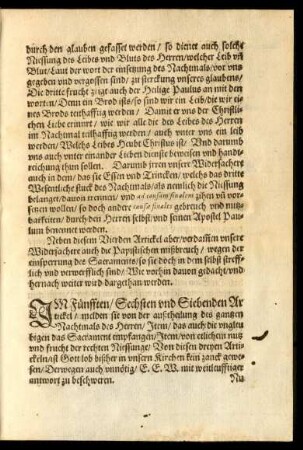 durch den glauben gefasset werden/ so dienet auch solche
Niessung des Leibes vnd Bluts des Herren/ welcher Leib vñ
Blut/ Laut der wort der einsetzung des Nachtmals/ vor vns
gegeben vnd vergossen sind/ zu sterckung vnseres glaubens/
Die dritte frucht zeigt auch der Heilge Paulus an mit den
worten/ Denn ein Brod ists/ so sind wir ein Leib/ die wir ei-
nes Brodts teilhafftig werden/ Damit er vns der Christli-
chen Liebe erinnert/ wie/ wir alle die den Leibes des Herren
im Nachtmal teilhafftig werden/ auch vnter vns ein leib
werden/ Welchs Leibes Heubt Christus ist/ Vnd darumb
vns auch vnter einander Lieben dienste beweisen vnd hand-
reichung thun sollen. Darumb jrren vnsere Widersacher
auch in dem/ das sie Essen vnd Trincken/ welchs das dritte
Wesentliche stuck des Nachtmals/ als nemlich die Niessung
belanget/ dauon trennen/ vnd ad causam finalem zihen vñ vor-
setzen wollen/ so doch andere causæ finales gebreuch vnd nutz-
barkeiten/ durch den Herren selbst/ vnd seinen Apostel Pau-
lum benennet werden.
Neben diesem Vierden Artickel aber/ verdassen vnsere
Widersachere auch die Papistischen mißbreuch/ wegen der
einsperung des Sacraments/ so sie doch in dem selbst streff-
lich vnd verwerfflich sind/ Wie vorhin dauon gedacht/ vnd
hernach weiter wird dargethan werden.
IM Fünfften/ Sechsten vnd Siebenden Ar-
tickel/ melden sie von der außtheilung des gantzen
Nachtmals des Herren/ Item/ das auch die vngleu-
bigen das Sacrament empfangen/ Item/ von etlichem nutz
vnd frucht der rechten Niessunge/ Von diesen dreyen Arti-
ckeln/ ist Gott lob bißher in vnsern Kirchen kein zanck gewe-
sen/ Derwegen auch vnnötig/ E. E. W. mit weitleufftiger
antwort zu beschweren.
Nu